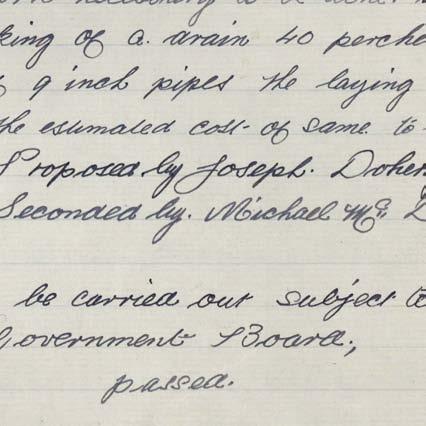 king of a. drain 40 perche
9 inch pipes the laying
the estimated cost of same to
Proposed by Joseph. Doher
Seconded by. Michael Mc D
be carried out subject to
Government Board,
passed.